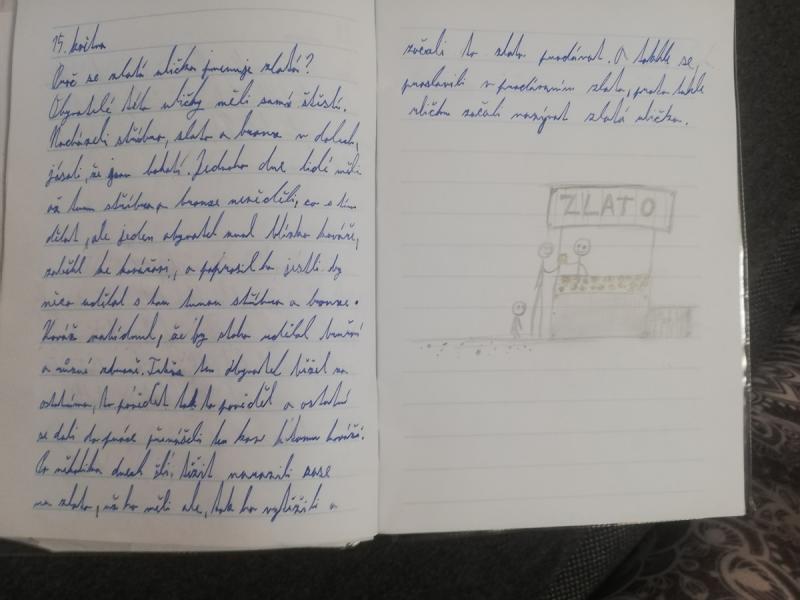 15. května
Proč se zlatá ulička jmenuje zlatá?
Obyvatelé této uličky měli samé štěstí.
Nacházeli stříbro, zlato a bronz v dolech,
jásali, že jsou bohatí. Jednoho dne lidé měli
až tunu stříbra a bronze nevěděli, co s tím
dělat, ale jeden obyvatel znal blízko kováře,
zaběhl ke kovářovi, a poprosil ho jestli by
něco udělal s tou tunou stříbra a bronze.
Kovář nabídnul, že by z toho udělal brnění
a různé zbraně. Takže ten obyvatel běžel za
ostatníma, to povědět tak to pověděl a ostatní
se dali do práce přenášeli ten kov k tomu kováři.
Po několika dnech šli těžit narazili zase
na zlato, už ho měli ale, tak ho vytěžili a
začali to zlato prodávat. A takhle se
proslavili v prodáváním zlata, proto takhle
uličku začali nazývat zlatá ulička.
ZLATO